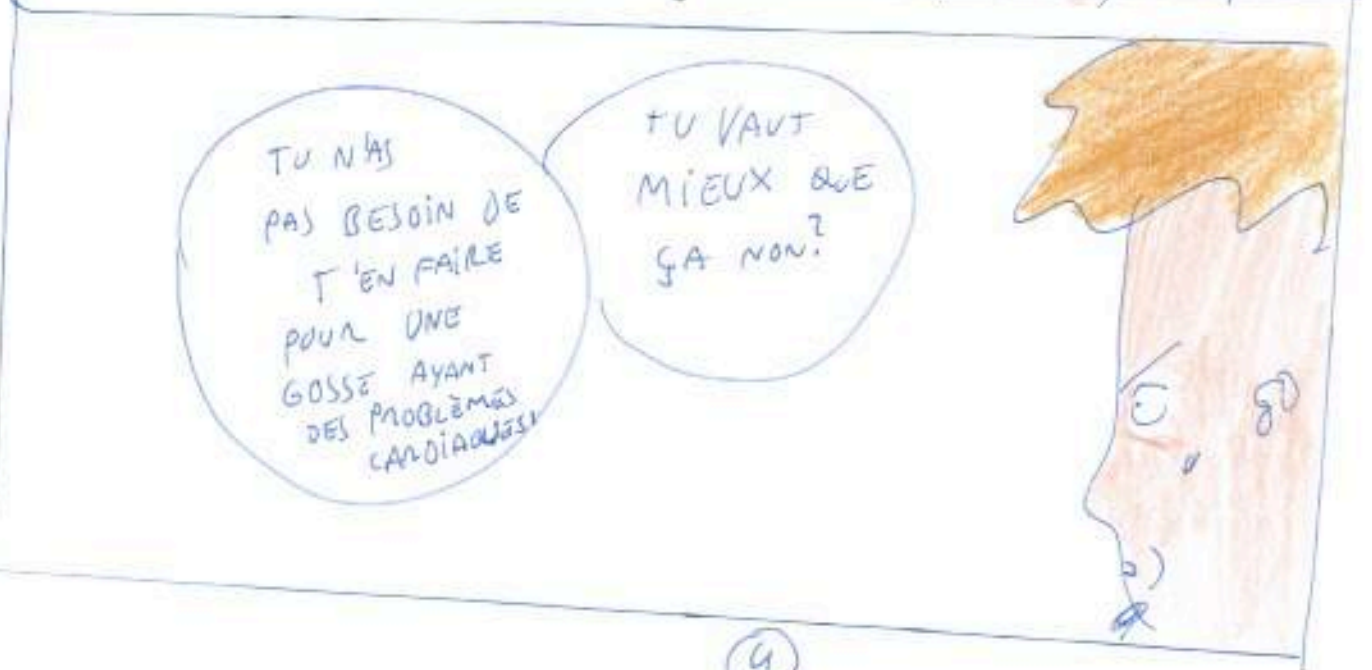 TU N'AS
PAS BESOIN DE
T'EN FAIRE
POUR UNE
GOSSE AYANT
DES PROBLÈMES
CARDIAQUES.
TU VAUT
MIEUX QUE
ÇA NON?
4